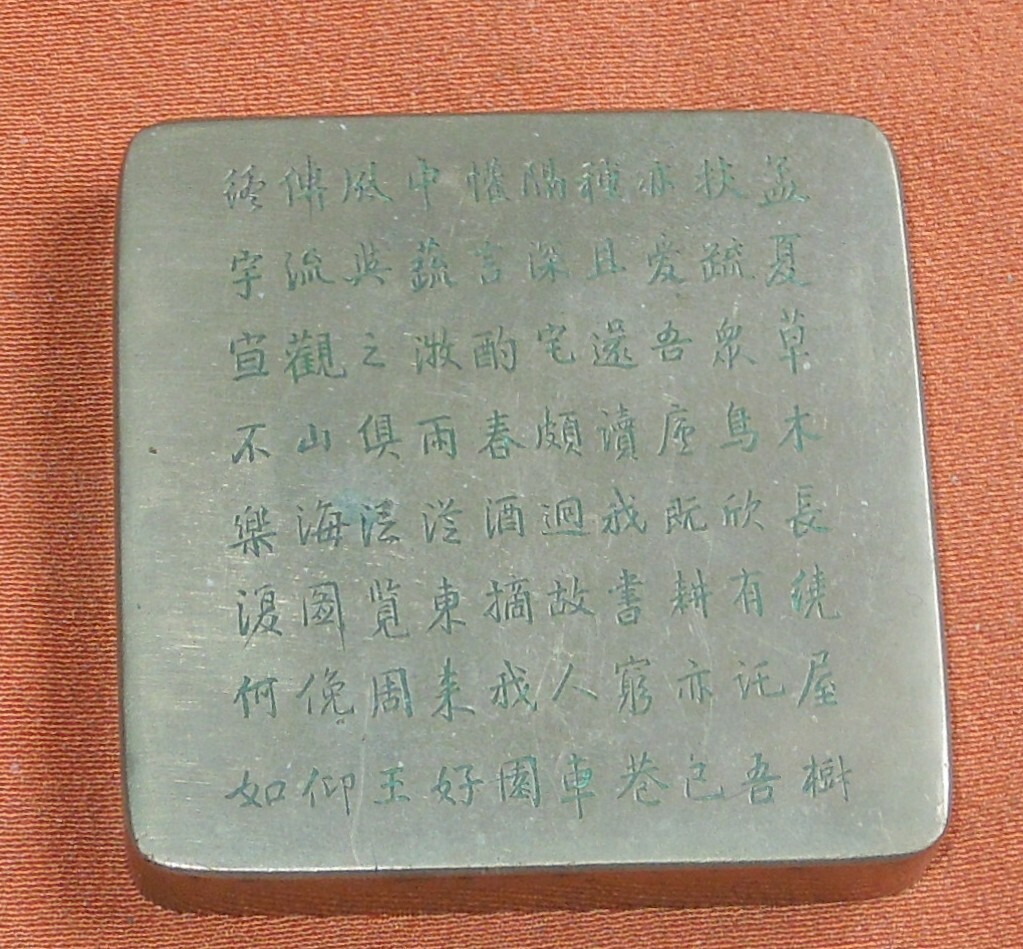 孟夏草木長繞屋樹
扶疏衆鳥欣有託吾
亦愛吾庐既耕亦已
種且還讀我書窮巷
隔深宅頗迴故人車
懽言酌春酒摘我園
中蔬微雨從東来好
風與之俱泛覧周王
傳流觀山海圖俛仰
終宇宙不樂復何如